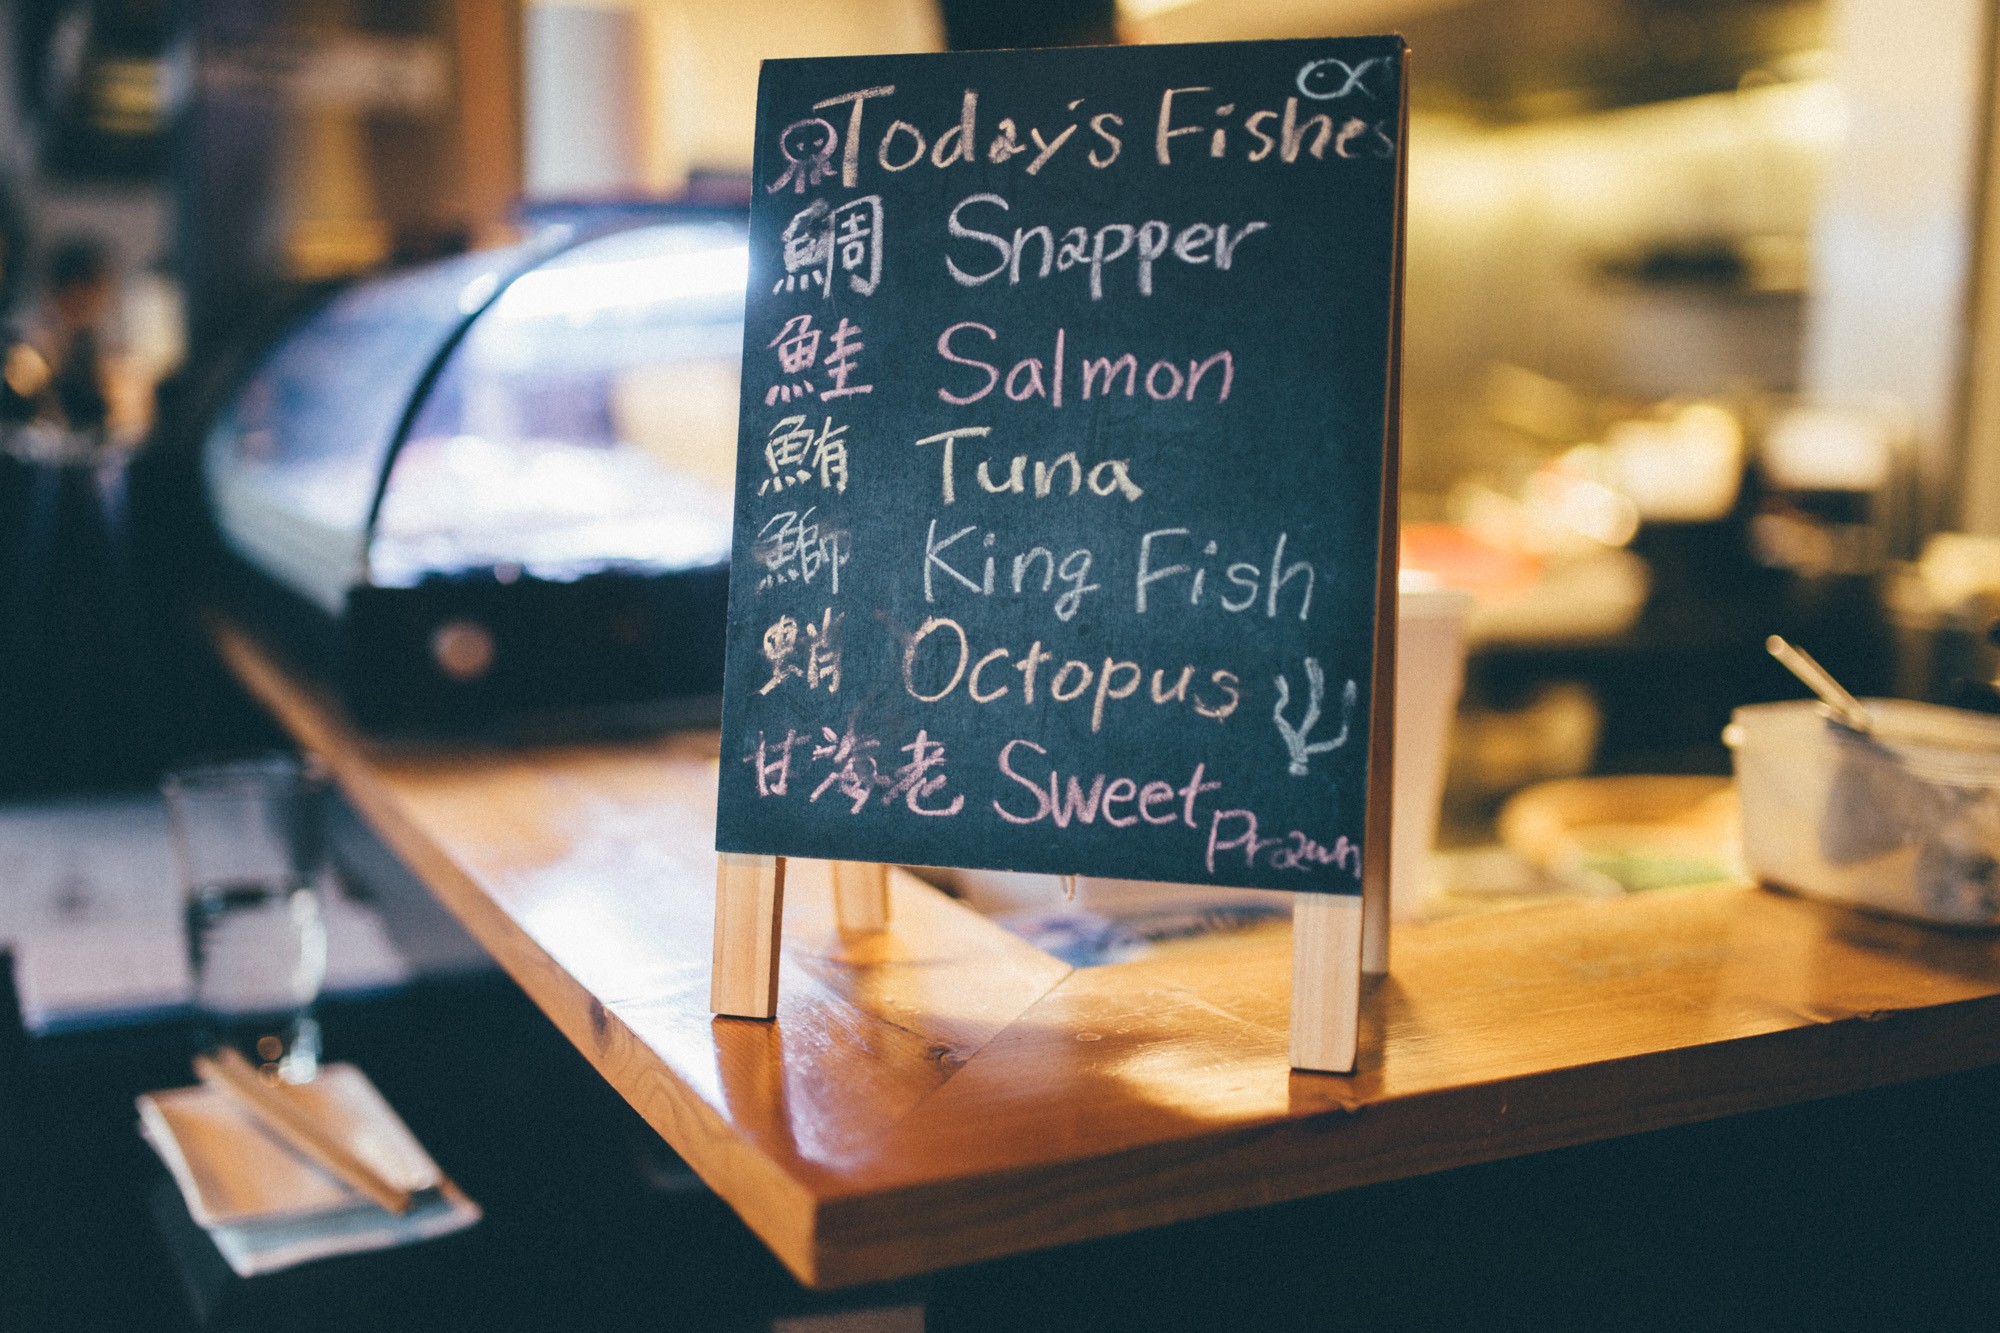 Today's Fishes
鯛 Snapper
鮭 Salmon
鮪 Tuna
鰤 King Fish
蛸 Octopus
甘海老 Sweet
Prawn